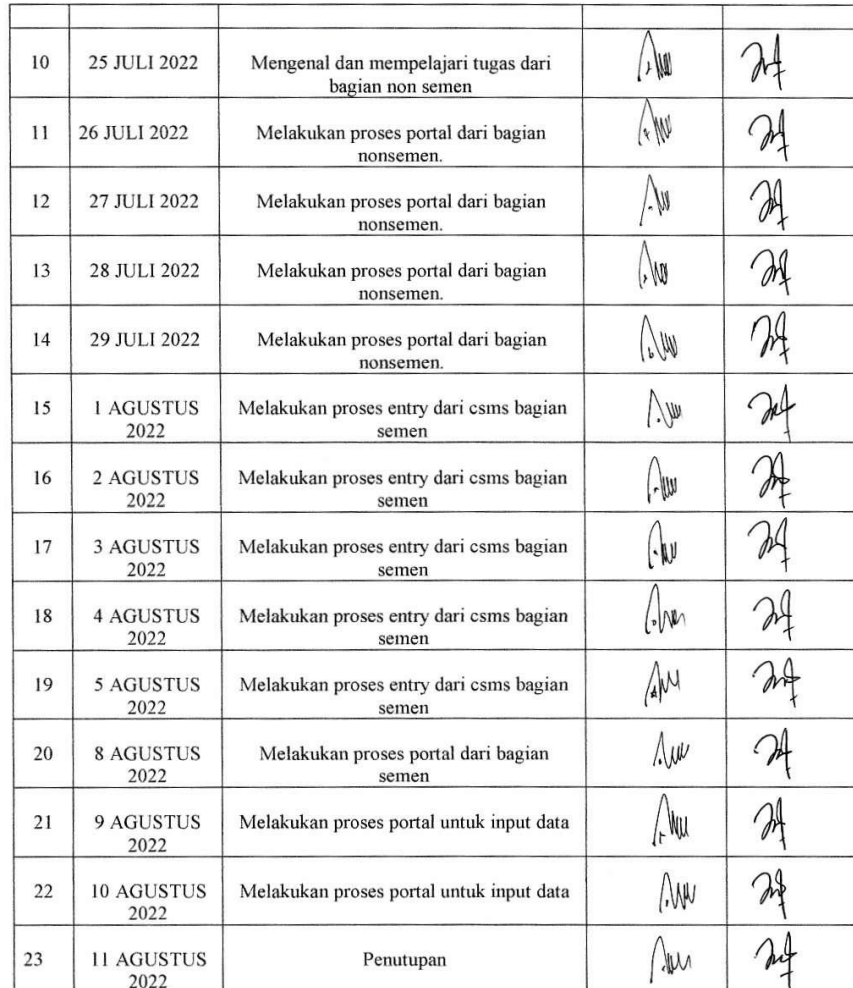 10 25 JULI 2022 Mengenal dan mempelajari tugas dari
bagian non semen
11 26 JULI 2022 Melakukan proses portal dari bagian
nonsemen.
12 27 JULI 2022 Melakukan proses portal dari bagian
nonsemen.
13 28 JULI 2022 Melakukan proses portal dari bagian
nonsemen.
14 29 JULI 2022 Melakukan proses portal dari bagian
nonsemen.
15 1 AGUSTUS Melakukan proses entry dari csms bagian
2022 semen
16 2 AGUSTUS Melakukan proses entry dari csms bagian
2022 semen
17 3 AGUSTUS Melakukan proses entry dari csms bagian
2022 semen
18 4 AGUSTUS Melakukan proses entry dari csms bagian
2022 semen
19 5 AGUSTUS Melakukan proses entry dari csms bagian
2022 semen
20 8 AGUSTUS Melakukan proses portal dari bagian
2022 semen
21 9 AGUSTUS Melakukan proses portal untuk input data
2022
22 10 AGUSTUS Melakukan proses portal untuk input data
2022
23 11 AGUSTUS Penutupan
2022